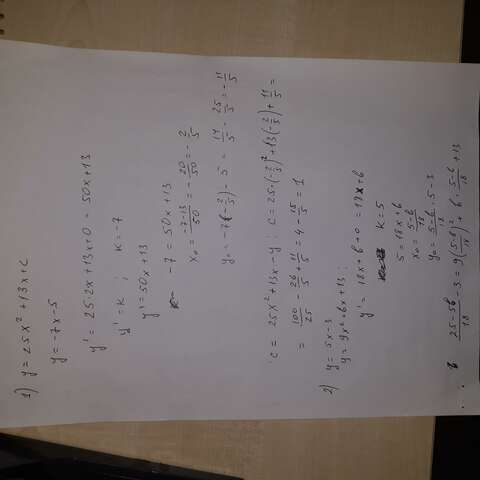 1) y = 25x² + 13x + c
y = -7x - 5
y' = 25·2x + 13x + 0 = 50x + 13
y' = k ; k = -7
y' = 50x + 13
-7 = 50x + 13
x₀ = (-7-13)/50 = -20/50 = -2/5
y₀ = -7(-2/5) - 5 = 14/5 - 25/5 = -11/5
c = 25x² + 13x - y ; c = 25·(-2/5)² + 13(-2/5) + 11/5 =
= 100/25 - 26/5 + 11/5 = 4 - 15/5 = 1
2) y = 5x - 3
y = 9x² + bx + 13 ;
y' = 18x + b + 0 = 18x + b
k = 5
5 = 18x + b
x₀ = (5-b)/18
y₀ = (5-b)/18 · 5 - 3
(25-5b)/18 - 3 = 9((5-b)/18)² + b·(5-b)/18 + 13